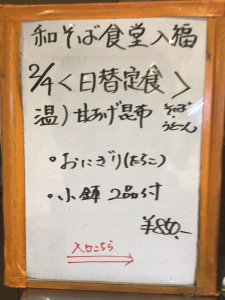 和そば食堂入福
2/4＜日替定食＞
温）甘あげ昆布 そば・うどん
・おにぎり(たらこ)
・小鉢 2品付
¥850-
入口こちら